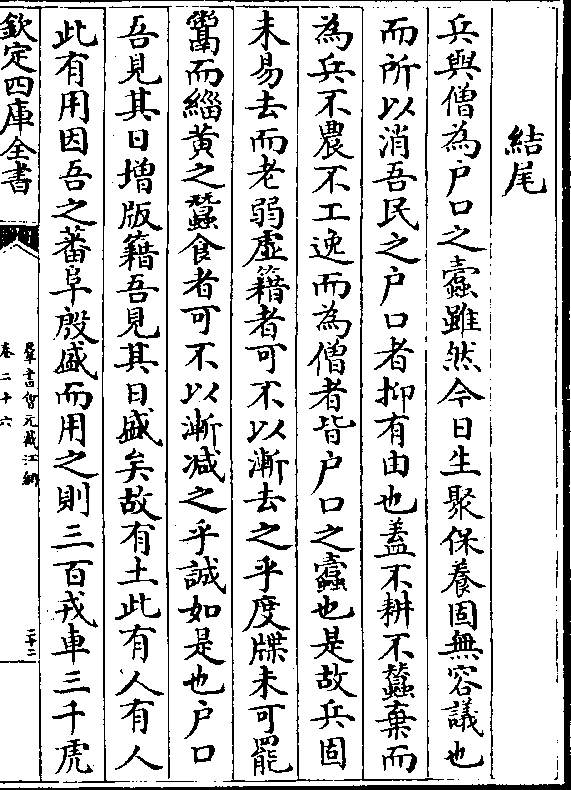 結尾
兵與僧為户口之蠧雖然今日生聚保養固無容議也
而所以消吾民之户口者抑有由也葢不耕不蠶棄而
為兵不農不工逸而為僧者皆户口之蠧也是故兵固
未易去而老弱虚籍者可不以漸去之乎度牒未可罷
鬻而緇黄之蠶食者可不以漸减之乎誠如是也户口
吾見其日增版籍吾見其日盛矣故有土此有人有人
此有用因吾之蕃阜殷盛而用之則三百戎車三千虎
欽定四庫全書
羣書㑹元截江網
卷二十六
三十二